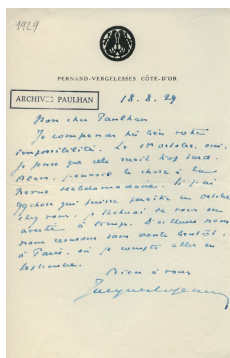 1929
PERNAND-VERGELESSES CÔTE-D'OR
ARCHIVES PAULHAN
18.8.29
Mon cher Paulhan
Je comprends très bien votre
impossibilité. Le 1er octobre, oui,
je pense que cela serait trop tard.
Alors, j'envoie la chose à la
Revue Hebdomadaire. Si j'ai
qqchose qui puisse paraître en octobre
chez vous, je tâcherai de vous en
avertir à temps. D'ailleurs nous
nous reverrons sans doute bientôt,
à Paris, où je compte aller en
septembre.
Bien à vous
Jacques Copeau